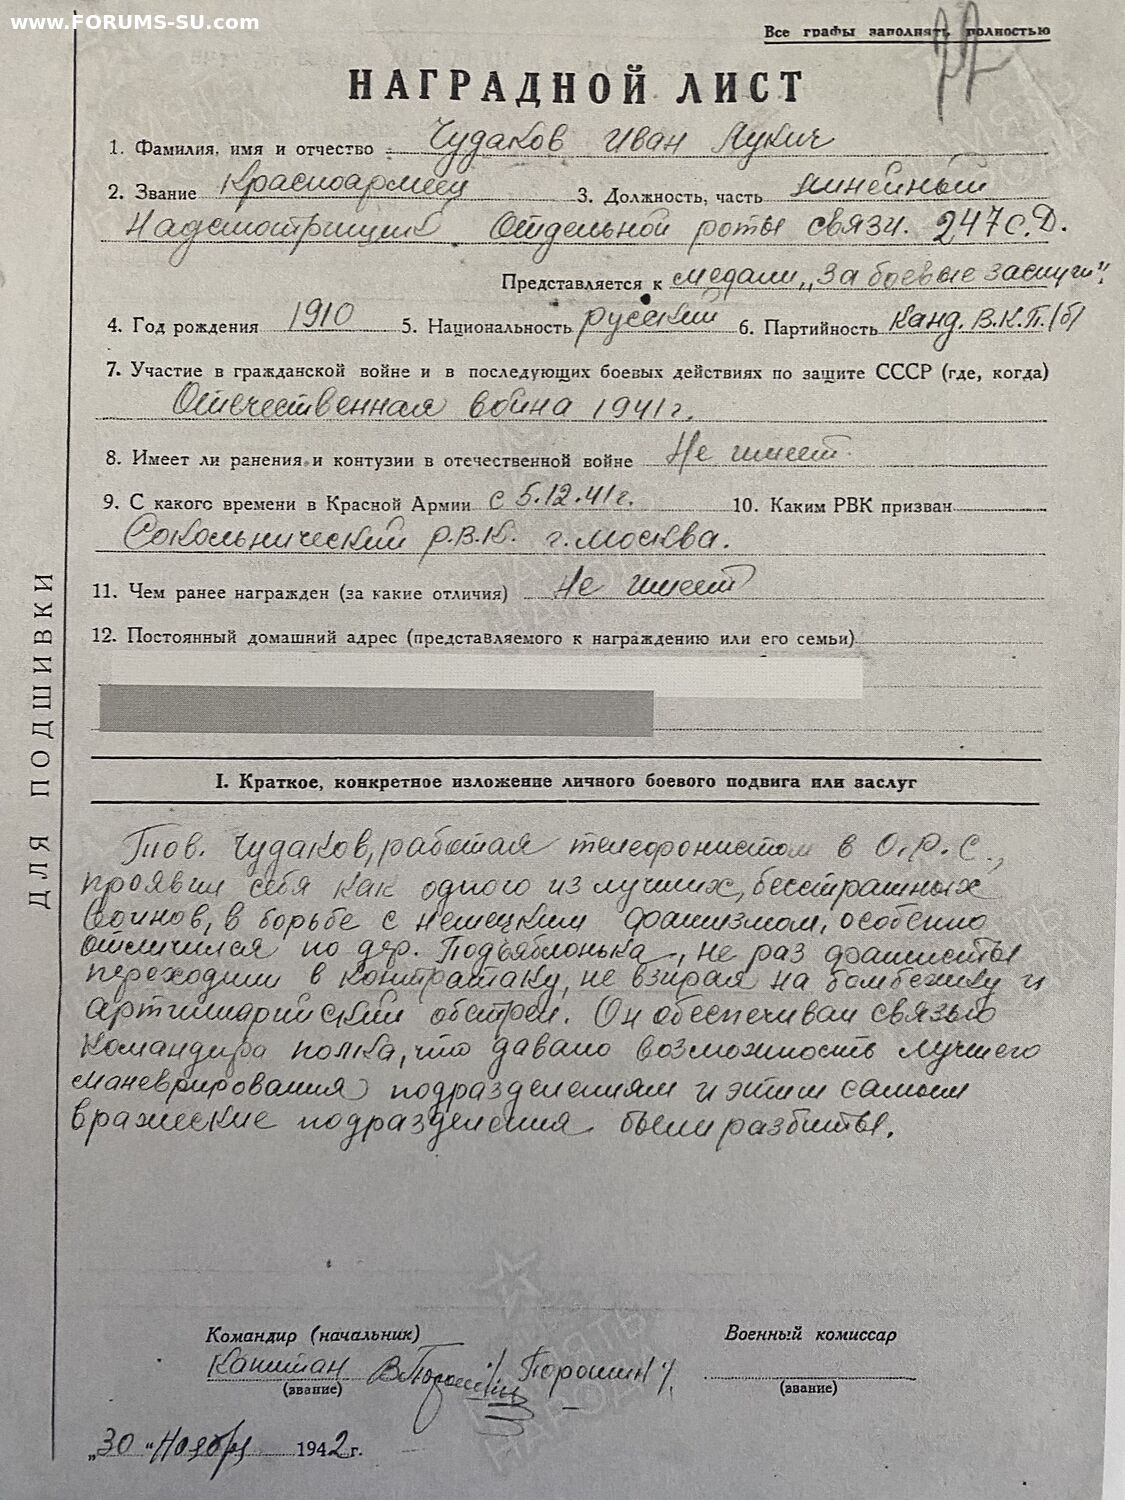 www.FORUMS-SU.com
Все графы заполнять полностью
НАГРАДНОЙ ЛИСТ
1. Фамилия, имя и отчество Чудаков Иван Лукич
2. Звание Красноармеец 3. Должность, часть линейный
Надсмотрщик Отдельной роты связи. 247 с.д.
Представляется к медали "За боевые заслуги".
4. Год рождения 1910 5. Национальность русский 6. Партийность Канд. В.К.П.(б)
7. Участие в гражданской войне и в последующих боевых действиях по защите СССР (где, когда)
Отечественная война 1941 г.
8. Имеет ли ранения и контузии в отечественной войне Не имеет
9. С какого времени в Красной Армии с 5.12.41 г. 10. Каким РВК призван
Сокольнический Р.В.К. г. Москва.
11. Чем ранее награжден (за какие отличия) Не имеет
12. Постоянный домашний адрес (представляемого к награждению или его семьи)
ДЛЯ ПОДШИВКИ
I. Краткое, конкретное изложение личного боевого подвига или заслуг
Тов. Чудаков, работая телефонистом в О.Р.С.,
проявил себя как одного из лучших, бесстрашных
воинов, в борьбе с немецким фашизмом, особенно
отличился по дер. Подъяблонька, не раз фашисты
переходили в контратаку, не взирая на бомбежку и
артиллерийский обстрел. Он обеспечивал связью
командира полка, что давало возможность лучшего
маневрирования подразделениям и этим самым
вражеские подразделения были разбиты.
Командир (начальник) Военный комиссар
Капитан Порошин
(звание) (звание)
"30" Ноября 1942 г.